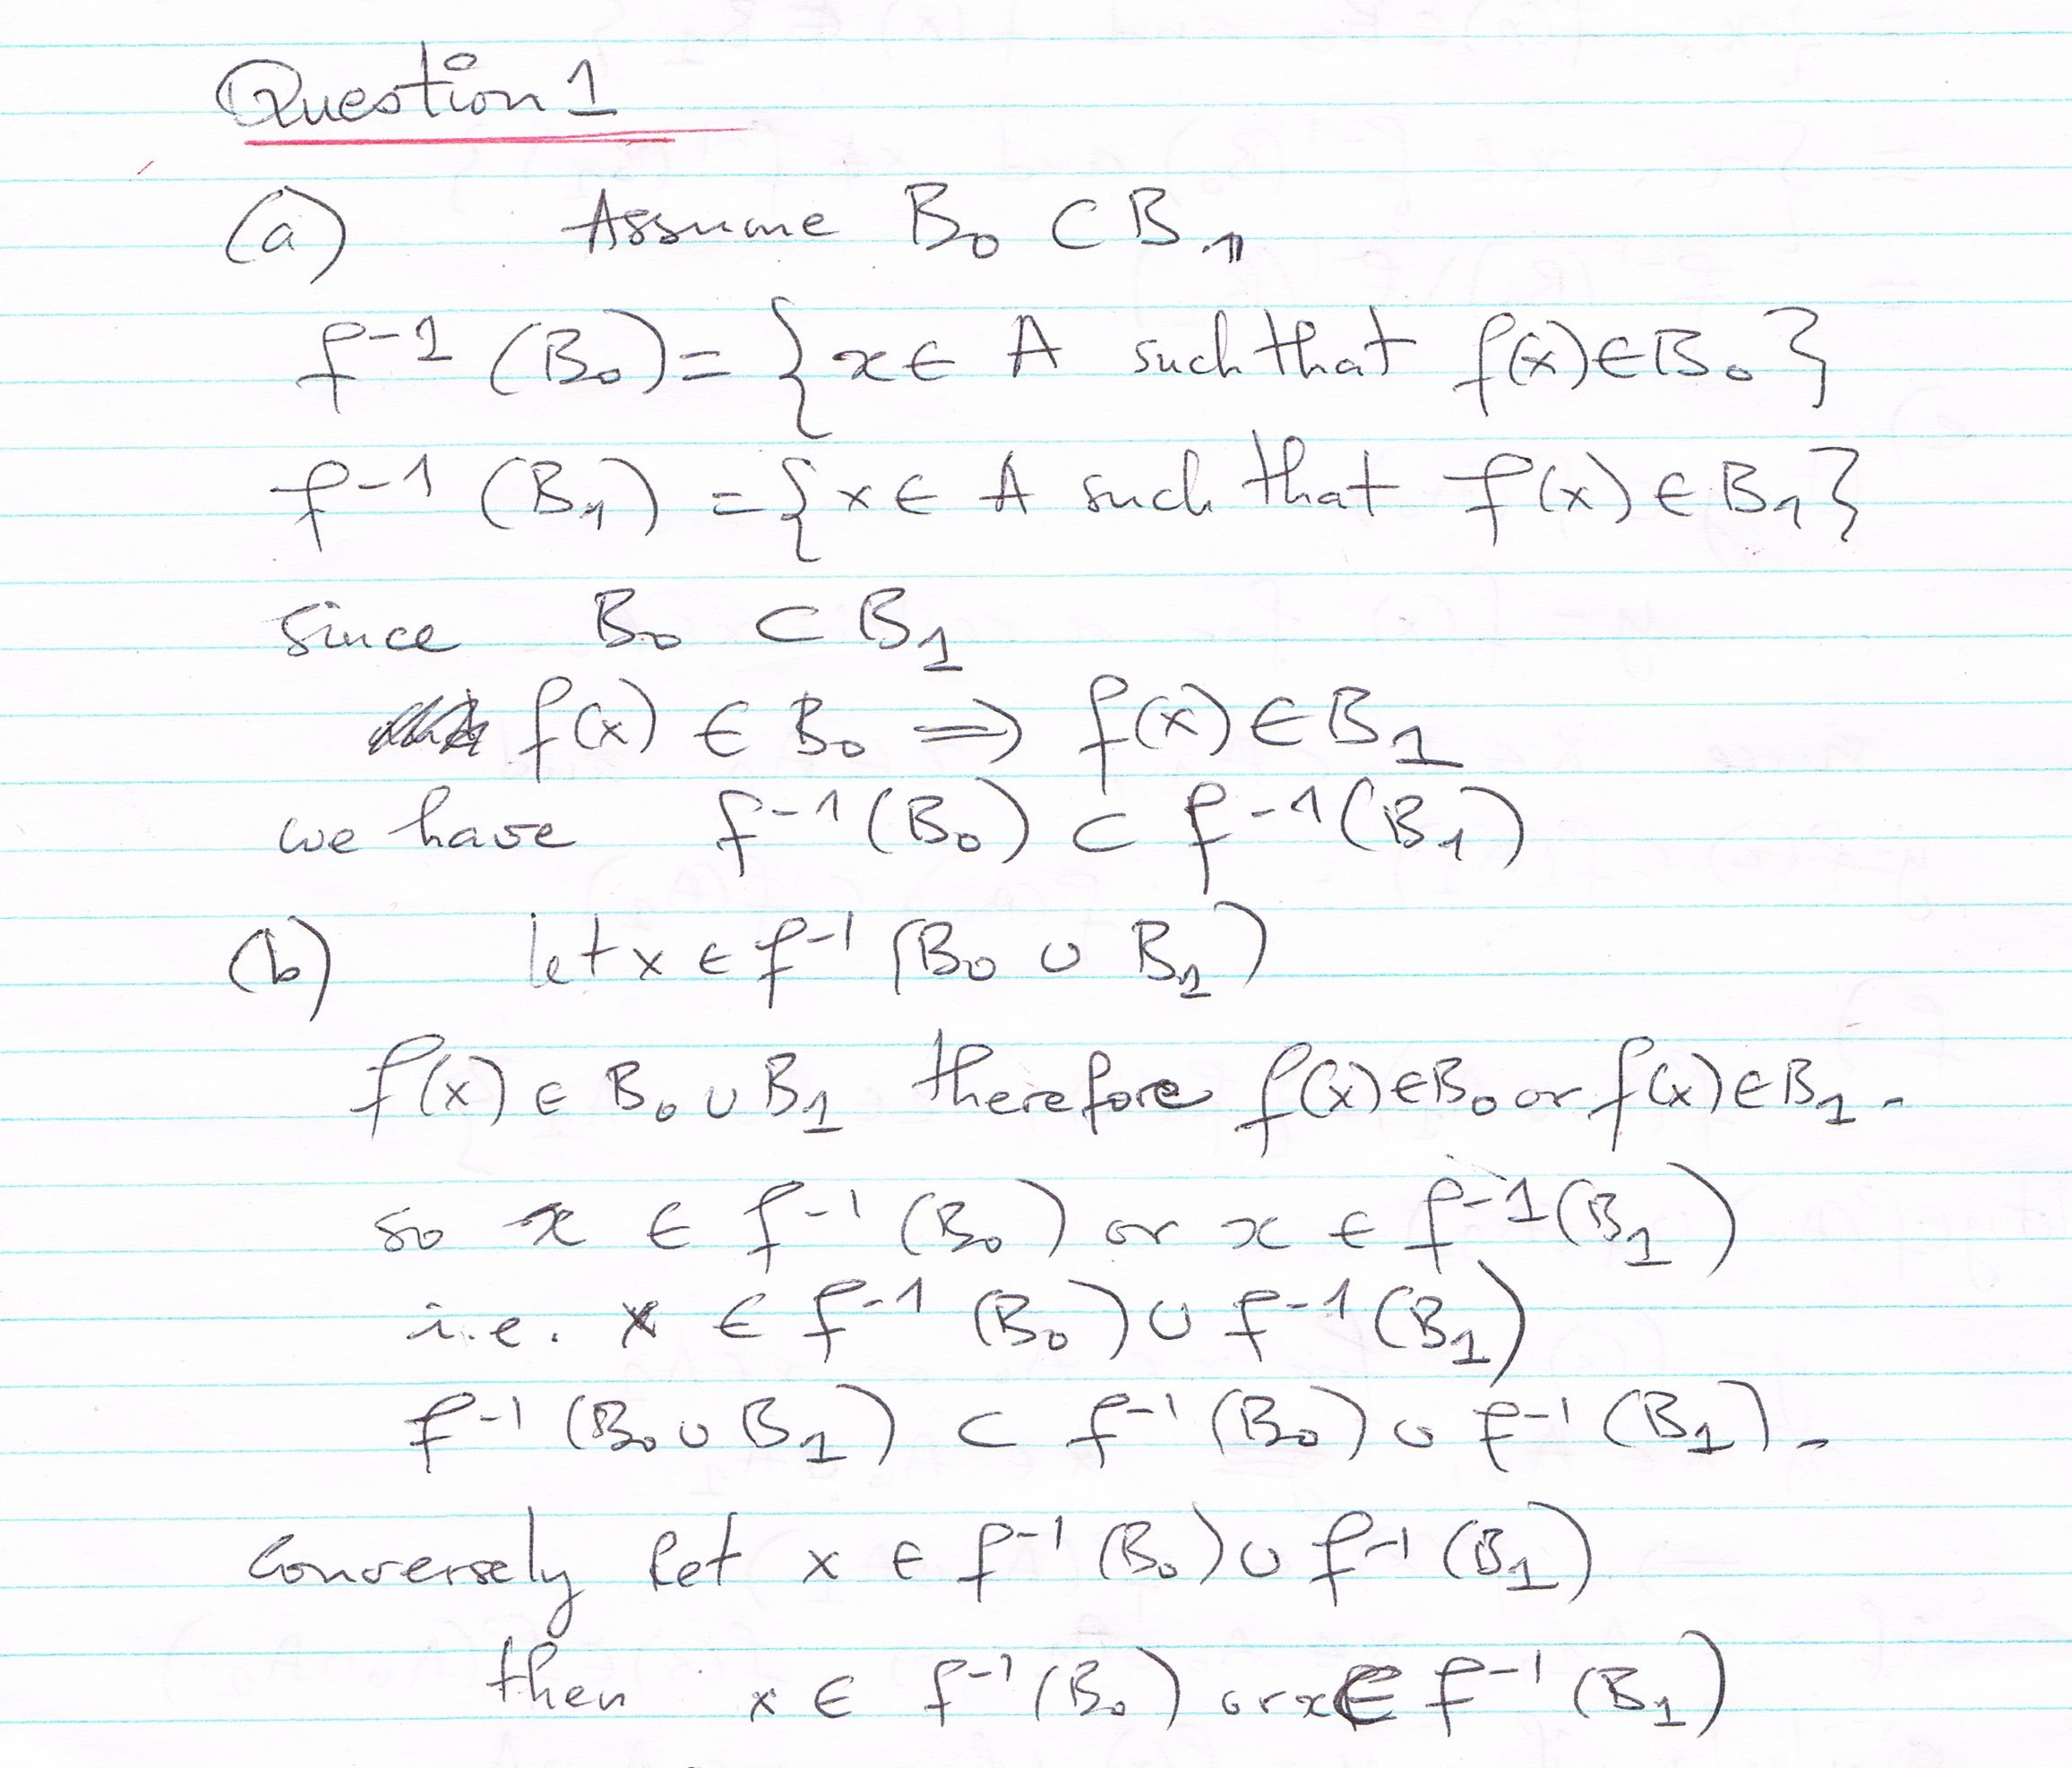 Question 1
(a) Assume B₀ ⊂ B₁
f⁻¹ (B₀) = {x ∈ A such that f(x) ∈ B₀}
f⁻¹ (B₁) = {x ∈ A such that f(x) ∈ B₁}
since B₀ ⊂ B₁
f(x) ∈ B₀ ⟹ f(x) ∈ B₁
we have f⁻¹(B₀) ⊂ f⁻¹(B₁)
(b) let x ∈ f⁻¹ (B₀ ∪ B₁)
f(x) ∈ B₀ ∪ B₁ therefore f(x) ∈ B₀ or f(x) ∈ B₁.
so x ∈ f⁻¹ (B₀) or x ∈ f⁻¹(B₁)
i.e. x ∈ f⁻¹ (B₀) ∪ f⁻¹(B₁)
f⁻¹ (B₀ ∪ B₁) ⊂ f⁻¹ (B₀) ∪ f⁻¹ (B₁).
Conversely let x ∈ f⁻¹ (B₀) ∪ f⁻¹ (B₁)
then x ∈ f⁻¹ (B₀) or x ∈ f⁻¹ (B₁)